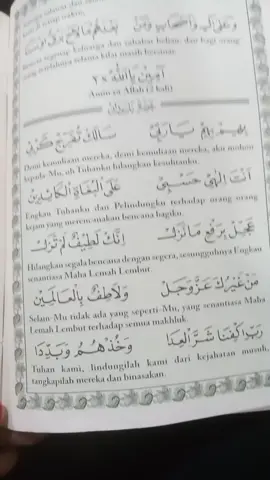 dan segenap keluarga dan sahabat beliau, dan bagi orang
yang
آمِيْن يَا اَللهُ ×٢
Amin ya Allah (2 kali)
بِهِمْ بِهِمْ يَا رَبِّي
سَأَلْتُكَ تُفَرِّجْ كَرْبِي
Demi kemuliaan mereka, demi kemuliaan mereka, aku mohon
kepada-Mu, oh Tuhanku hilangkan kesulitanku.
أَنْتَ إِلٰهِيْ حَسْبِيْ
عَلَى الْبُغَاةِ الْكَائِدِيْنَ
Engkau Tuhanku dan Pelindungku terhadap orang orang
kejam yang merencanakan bencana bagiku.
عَجِّلْ بِرَفْعِ مَا نَزَلْ
إِنَّكَ لَطِيْفٌ لَمْ تَزَلْ
Hilangkan segala bencana dengan segera, sesungguhnya Engkau
senantiasa Maha Lemah Lembut.
مَنْ غَيْرُكَ عَزَّ وَجَلَّ
وَلَاطِفٌ بِالْعَالَمِيْنَ
Selain-Mu tidak ada yang seperti-Mu, yang senantiasa Maha
Lemah Lembut terhadap semua makhluk.
رَبِّ اكْفِنَا شَرَّ الْعِدَا
وَخُذْهُمُ وَبَدِّدَا
Tuhan kami, lindungilah kami dari kejahatan musuh,
tangkaplah mereka dan binasakan.